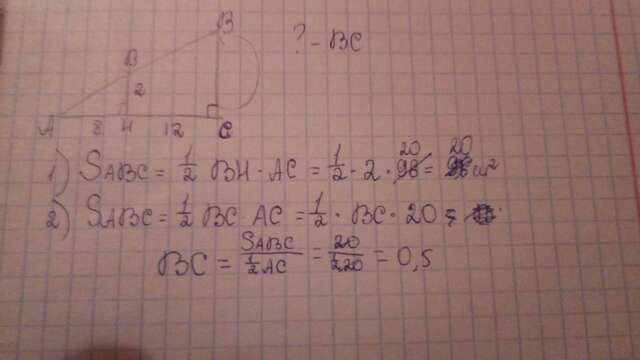 B
? - BC
B
2
A 8 H 12 C
1) SABC = 1/2 BH · AC = 1/2 · 2 · 20 = 20 м²
2) SABC = 1/2 BC · AC = 1/2 · BC · 20 =
BC = SABC / 1/2 AC = 20 / 1/2 20 = 0,5